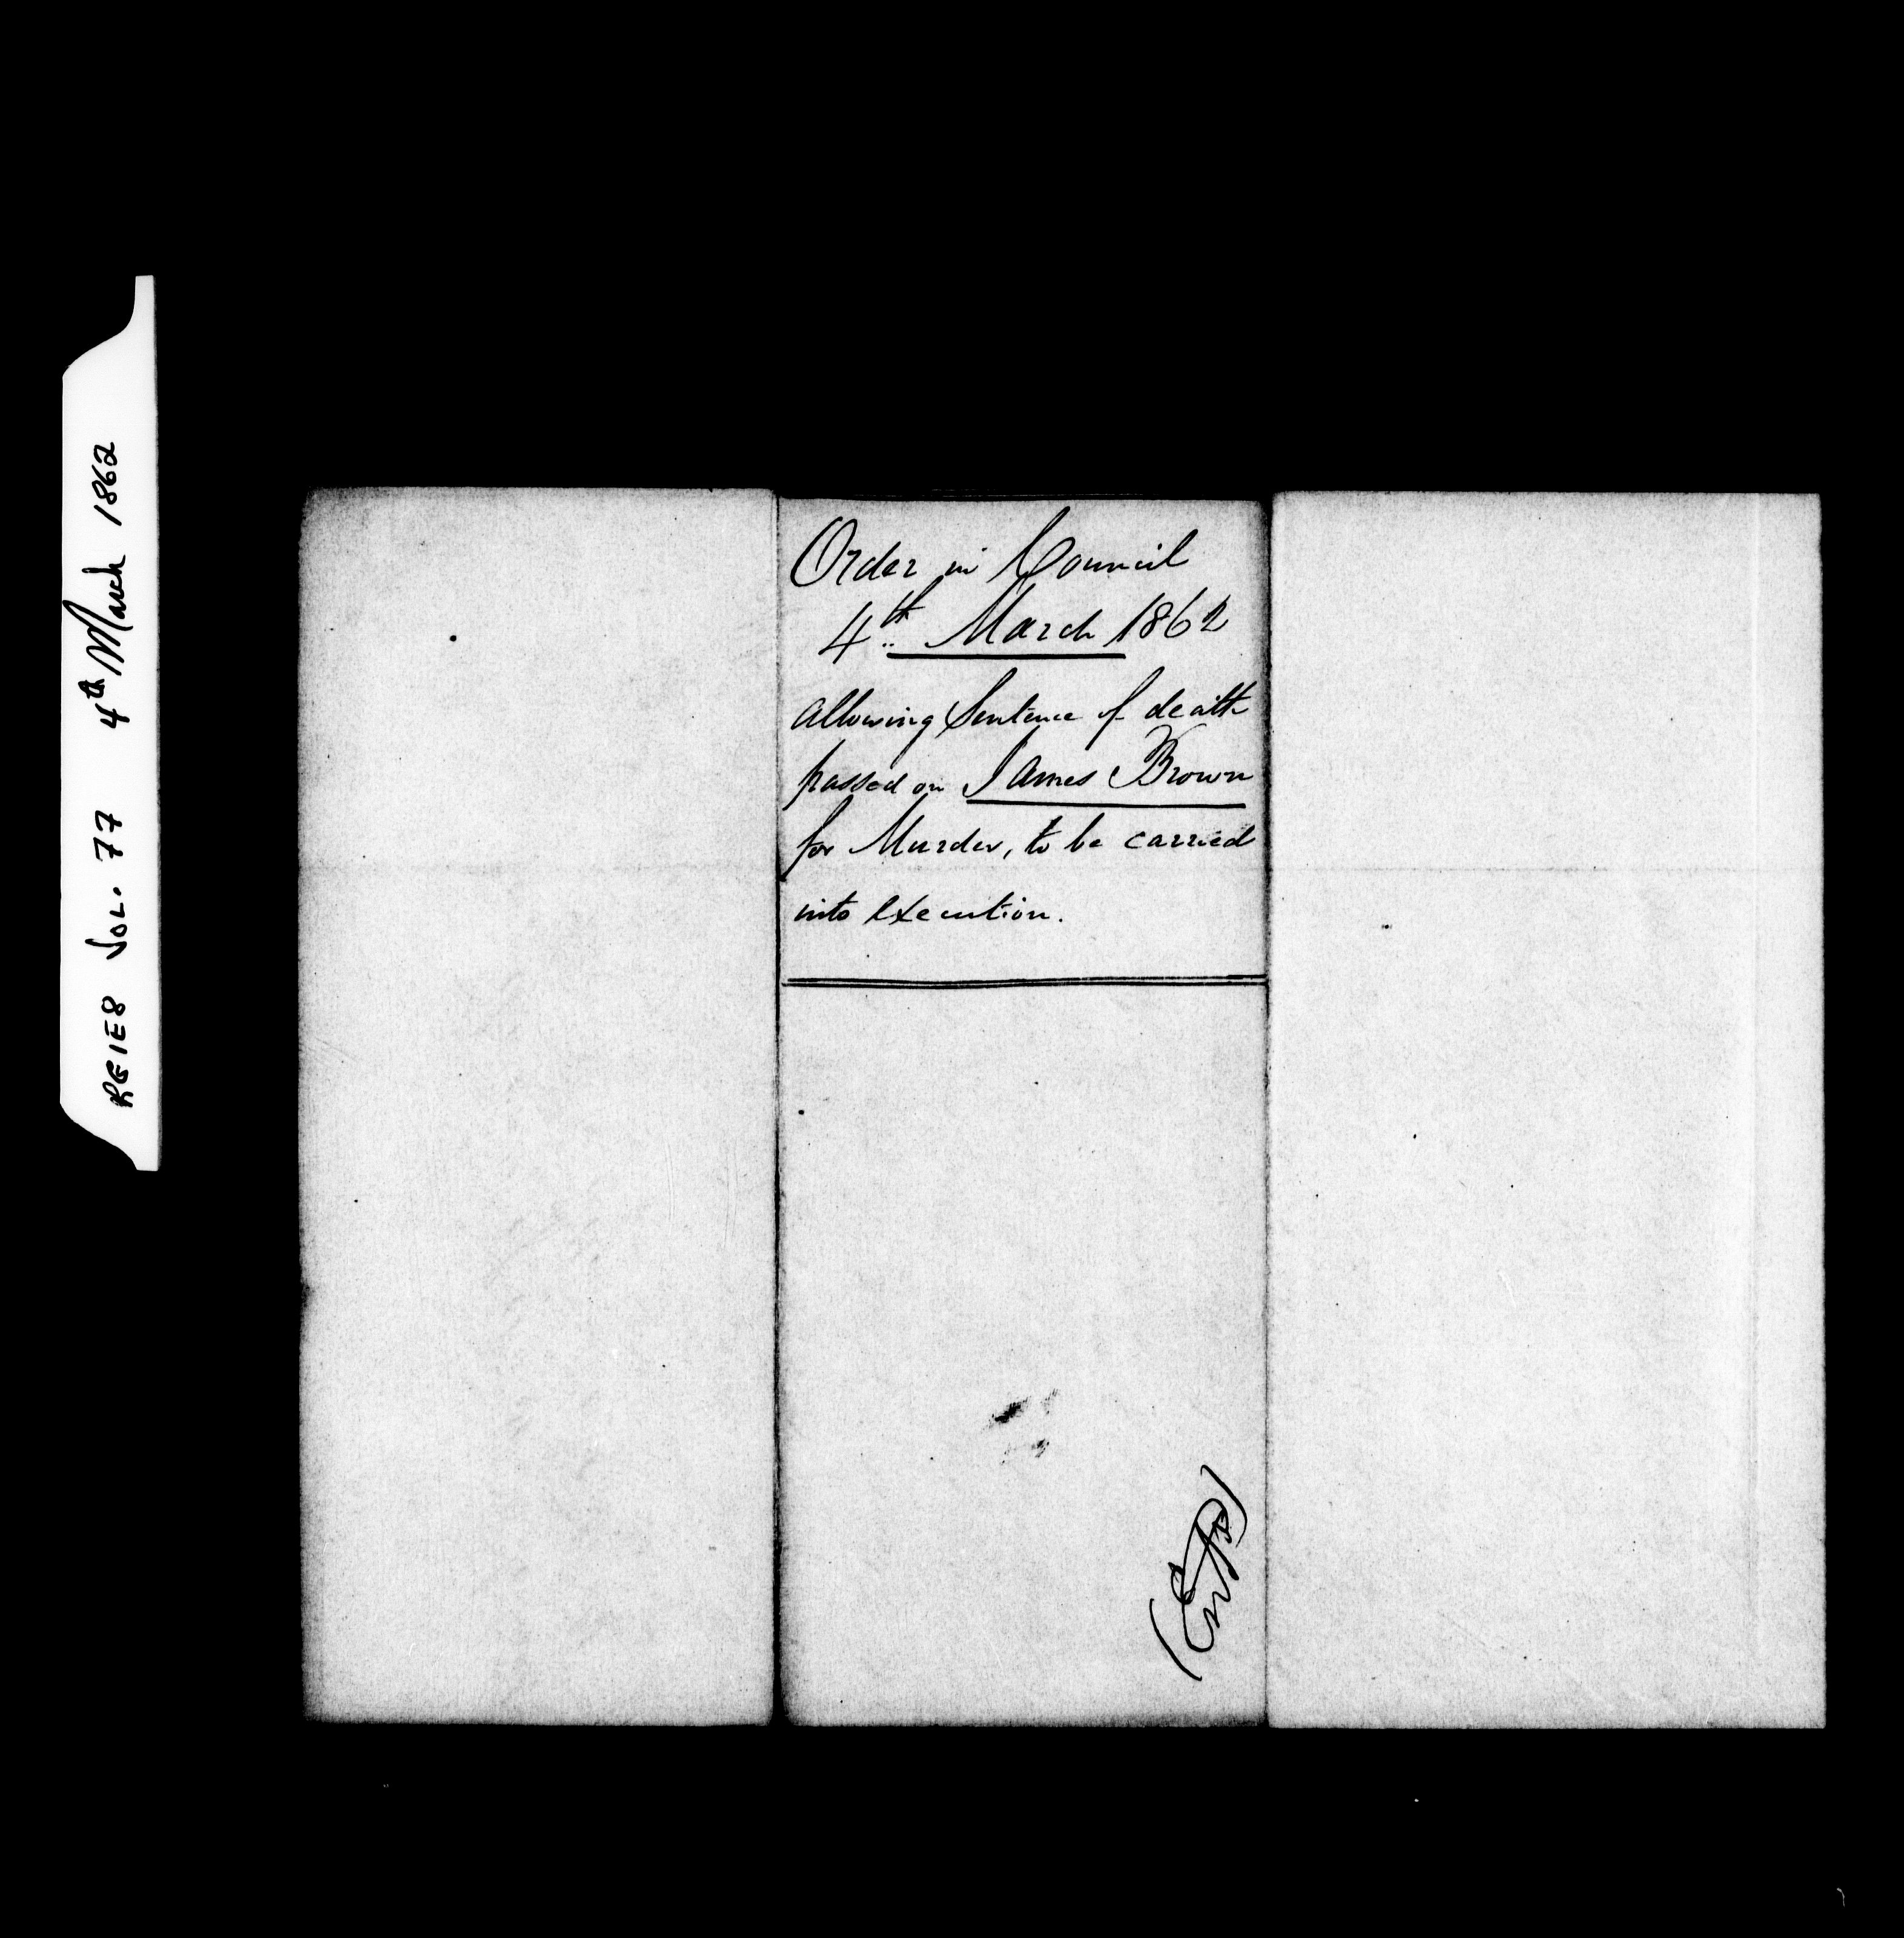 RG1E8 VOL. 77 4th March 1862
Order in Council
4th March 1862
allowing Sentence of death
passed on James Brown
for Murder, to be carried
into execution.